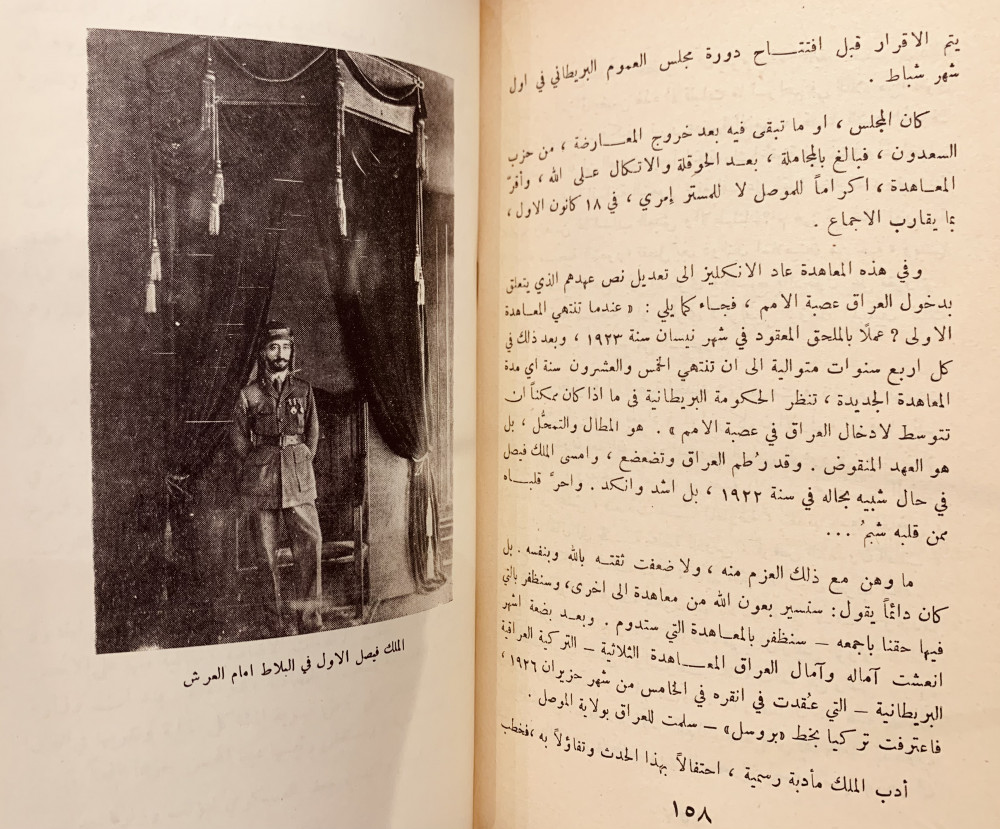 يتم الاقرار قبل افتتاح دورة مجلس العموم البريطاني في اول
شهر شباط .
كان المجلس ، او ما تبقى فيه بعد خروج المعارضة ، من حزب
السعدون ، فبالغ بالمجاملة ، بعد الحوقلة والاتكال على الله ، وأقرّ
المعاهدة ، اكراماً للموصل لا للمستر إمري ، في ١٨ كانون الاول ،
بما يقارب الاجماع .
وفي هذه المعاهدة عاد الانكليز الى تعديل نص عهدهم الذي يتعلق
بدخول العراق عصبة الامم ، فجاء كما يلي : « عندما تنتهي المعاهدة
الاولى ? عملًا بالملحق المعقود في شهر نيسان سنة ١٩٢٣ ، وبعد ذلك في
كل اربع سنوات متوالية الى ان تنتهي الخمس والعشرون سنة اي مدة
المعاهدة الجديدة ، تنظر الحكومة البريطانية في ما اذا كان ممكناً ان
تتوسط لادخال العراق في عصبة الامم » . هو المطال والتمحُّل ، بل
هو العهد المنقوض . وقد رُطم العراق وتضعضع ، وامسى الملك فيصل
في حال شبيه بحاله في سنة ١٩٢٢ ، بل اشد وانكد . واحرَّ قلباه
ممن قلبه شبمُ ...
ما وهن مع ذلك العزم منه ، ولا ضعفت ثقته بالله وبنفسه . بل
كان دائمًا يقول : سنسير بعون الله من معاهدة الى اخرى ، وسنظفر بالتي
فيها حقنا باجمعه – سنظفر بالمعاهدة التي ستدوم . وبعد بضعة اشهر
انعشت آماله وآمال العراق المعاهدة الثلاثية – التركية العراقية
البريطانية – التي عُقدت في انقره في الخامس من شهر حزيران ١٩٢٦ ،
فاعترفت تركيا بخط «بروسل» – سلمت للعراق بولاية الموصل .
أدب الملك مأدبة رسمية ، احتفالاً بهذا الحدث وتفاؤلاً به ، فخطب
١٥٨
الملك فيصل الاول في البلاط امام العرش